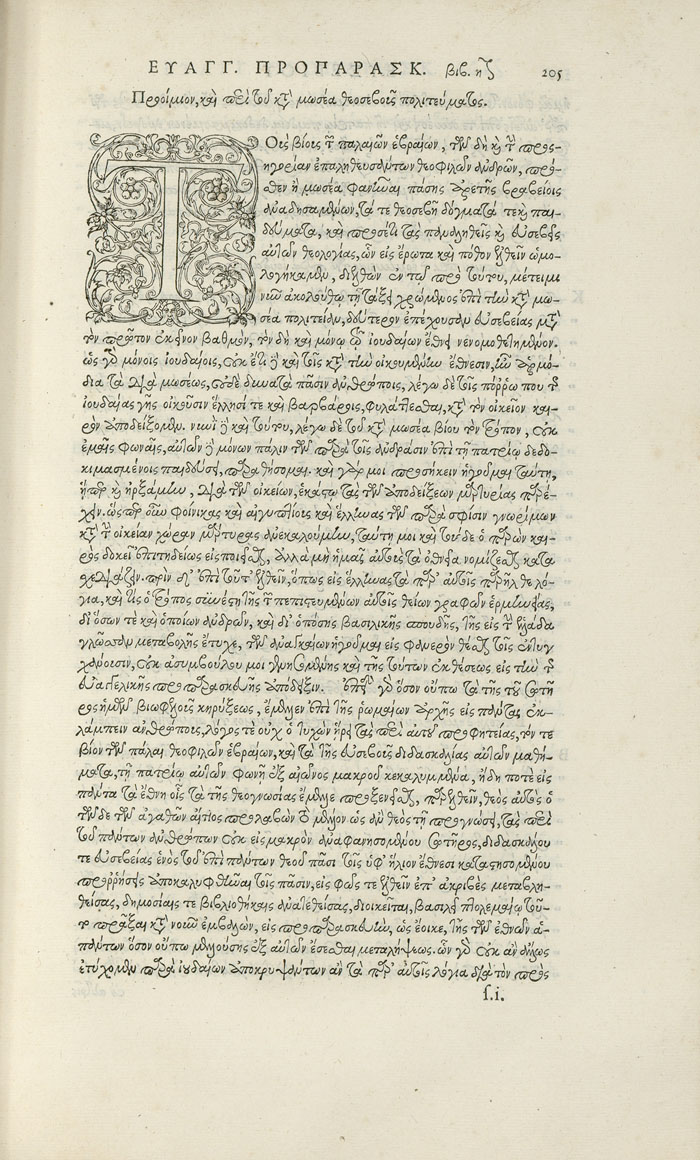 ΕΥΑΓΓ. ΠΡΟΠΑΡΑΣΚ. βιβ. η 205
Προοίμιον, καὶ περὶ τοῦ κατὰ μωσέα θεοσεβοῦς πολιτεύματος.
ΤΟῖς βίοις τῶν παλαιῶν ἑβραίων, τῶν δὴ καὶ τὴν προσ-
ηγορίαν ἐπαληθευσάντων θεοφιλῶν ἀνδρῶν, πρό-
σθεν ἢ μωσέα φανῆναι πάσης ἀρετῆς βραβείοις
ἀναδησαμένων, τά τε θεοσεβῆ δόγματά τε καὶ παι-
δεύματα, καὶ προσέτι τὰς πολυκλήτους καὶ εὐσεβεῖς
αὐτῶν θεολογίας, ὧν εἰς ἔρωτα καὶ πόθον ἐλθεῖν ὡμο-
λογήκαμεν, διελθὼν ἐν τῷ πρὸ τούτου, μέτειμι
νῦν ἀκολούθῳ τῇ τάξει χρώμενος ἐπὶ τὴν κατὰ μω-
σέα πολιτείαν, δεύτερον ἐπέχουσαν εὐσεβείας μετὰ
τὸν πρῶτον ἐκεῖνον βαθμόν, τὸν δὴ καὶ μόνῳ τῷ ἰουδαίων ἔθνει νενομοθετημένον.
ὡς γὰρ μόνοις ἰουδαίοις, οὐκ ἔτι δὲ καὶ τοῖς κατὰ τὴν οἰκουμένην ἔθνεσιν, ἦν ἁρμό-
δια τὰ διὰ μωσέως, οὐδὲ δυνατὰ πᾶσιν ἀνθρώποις, λέγω δὲ τοῖς πόρρω που τῆς
ἰουδαίας γῆς οἰκοῦσιν ἕλλησί τε καὶ βαρβάροις, φυλάττεσθαι, κατὰ τὸν οἰκεῖον και-
ρὸν ἀποδείξομεν. νυνὶ δὲ καὶ τοῦτον, λέγω δὲ τοῦ κατὰ μωσέα βίου τὸν τρόπον, οὐκ
ἐμαῖς φωναῖς, αὐτῶν δὲ μόνων πάλιν τῶν παρὰ τοῖς ἀνδράσιν ἐπὶ τῇ πατρίῳ δεδο-
κιμασμένοις παιδεύσει, παραθήσομαι. καὶ γάρ μοι προσήκειν ἡγοῦμαι ταύτῃ,
ᾗπερ καὶ ἠρξάμην, διὰ τῶν οἰκείων, ἑκάστῳ τὰς τῶν ἀποδείξεων μαρτυρίας παρέ-
χειν. ὥσπερ οὖν φοίνικας καὶ αἰγυπτίους καὶ ἕλληνας τῶν παρὰ σφίσιν γνωρίμων
κατὰ τὴν οἰκείαν χώραν μάρτυρας ἀνεκαλούμην, ταύτῃ μοι καὶ τούσδε ὁ παρὼν και-
ρὸς δοκεῖ ἐπιτηδείως εἰσποιεῖσθαι, ἀλλὰ μὴ ἡμᾶς αὐτοὺς τὰ ὀθνεῖα νομίζεσθαι κατα
σχεδιάζειν. πρὶν δ' ἐπὶ τοῦτ' ἐλθεῖν, ὅπως εἰς ἕλληνας τὰ παρ' αὐτοῖς παρῆλθε λό-
για, καὶ τίς ὁ τρόπος συνέστη τῆς τῶν πεπιστευμένων αὐτοῖς θείων γραφῶν ἑρμηνείας,
δι' ὅσων τὲ καὶ ὁποίων ἀνδρῶν, καὶ δι' ὁπόσης βασιλικῆς σπουδῆς, τῆς εἰς τὴν ἑλλάδα
γλῶσσαν μεταβολῆς ἔτυχε, τῶν ἀναγκαίων ἡγοῦμαι εἰς φανερὸν θέσθαι τοῖς ἐντυγ
χάνουσιν, οὐκ ἀσυμβούλου μοι γενησομένης καὶ τῆς τούτων ἐκθέσεως εἰς τὴν τῆς
εὐαγγελικῆς προπαρασκευῆς ἀπόδειξιν. ἐπεὶ γὰρ ὅσον οὔπω τὰ τῆς τοῦ σωτῆ
ρος ἡμῶν βιωφελοῦς κηρύξεως, ἔμελλεν ἐπὶ τῆς ῥωμαίων ἀρχῆς εἰς πάντας ἐκ-
λάμπειν ἀνθρώποις, λόγος τὲ οὐχ ὁ τυχὼν ᾔρει τὰς περὶ αὐτοῦ προφητείας, τόν τε
βίον τῶν πάλαι θεοφιλῶν ἑβραίων, καὶ τὰ τῆς εὐσεβοῦς διδασκαλίας αὐτῶν μαθή-
ματα, τῇ πατρίῳ αὐτῶν φωνῇ ἐξ αἰῶνος μακροῦ κεκαλυμμένα, ἤδη ποτὲ εἰς
πάντα τὰ ἔθνη οἷς τὰ τῆς θεογνωσίας ἔμελλε προξενεῖσθαι, παρελθεῖν, θεὸς αὐτὸς ὁ
τῶνδε τῶν ἀγαθῶν αἴτιος προλαβὼν τὸ μέλλον ὡς ἂν θεὸς τῇ προγνώσει, τὰς περὶ
τοῦ πάντων ἀνθρώπων οὐκ εἰς μακρὸν ἀναφανησομένου σωτῆρος, διδασκάλου
τε εὐσεβείας ἑνὸς τοῦ ἐπὶ πάντων θεοῦ πᾶσι τοῖς ὑφ' ἥλιον ἔθνεσι καταστησομένου
προρρήσεις ἀποκαλυφθῆναι τοῖς πᾶσιν, εἰς φῶς τε ἐλθεῖν ἐπ' ἀκριβὲς μεταβλη-
θείσας, δημοσίαις τε βιβλιοθήκαις ἀνατεθείσας, διοικεῖται, βασιλεῖ πτολεμαίῳ τοῦ-
το πρᾶξαι κατὰ νοῦν ἐμβαλών, εἰς προπαρασκευήν, ὡς ἔοικε, τῆς τῶν ἐθνῶν ἁ-
πάντων ὅσον οὔπω μελλούσης ἐξ αὐτῶν ἔσεσθαι μεταλήψεως. ὧν γὰρ οὐκ ἂν ἄλλως
ἐτύχομεν παρὰ ἰουδαίων ἀποκρυψάντων ἂν τὰ παρ' αὐτοῖς λόγια διὰ τὸν πρὸς
ſ.i.